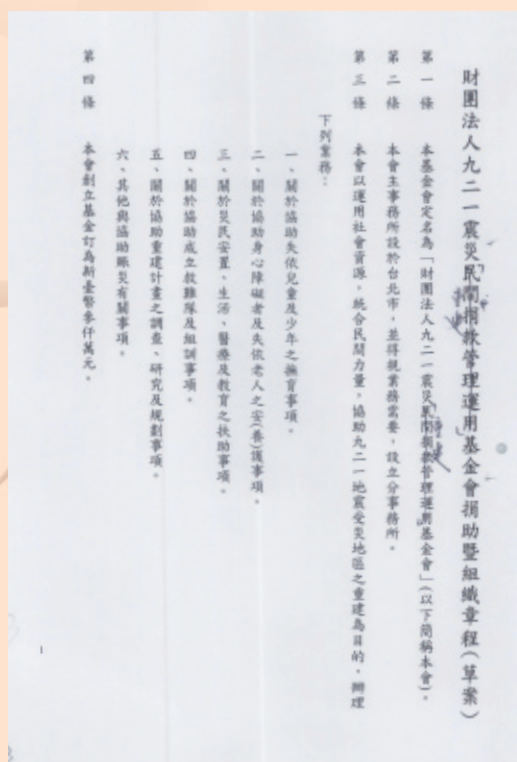 財團法人九二一震災民間捐款管理運用基金會捐助暨組織章程（草案）
第一條　本基金會定名為「財團法人九二一震災民間捐款管理運用基金會」（以下簡稱本會）。
第二條　本會主事務所設於台北市，並得視業務需要，設立分事務所。
第三條　本會以運用社會資源，統合民間力量，協助九二一地震受災地區之重建為目的，辦理
下列業務：
一、關於協助失依兒童及少年之撫育事項。
二、關於協助身心障礙者及失依老人之安(養)護事項。
三、關於災民安置、生活、醫療及教育之扶助事項。
四、關於協助成立救難隊及組訓事項。
五、關於協助重建計畫之調查、研究及規劃事項。
六、其他與協助賑災有關事項。
第四條　本會創立基金訂為新臺幣參仟萬元。
1